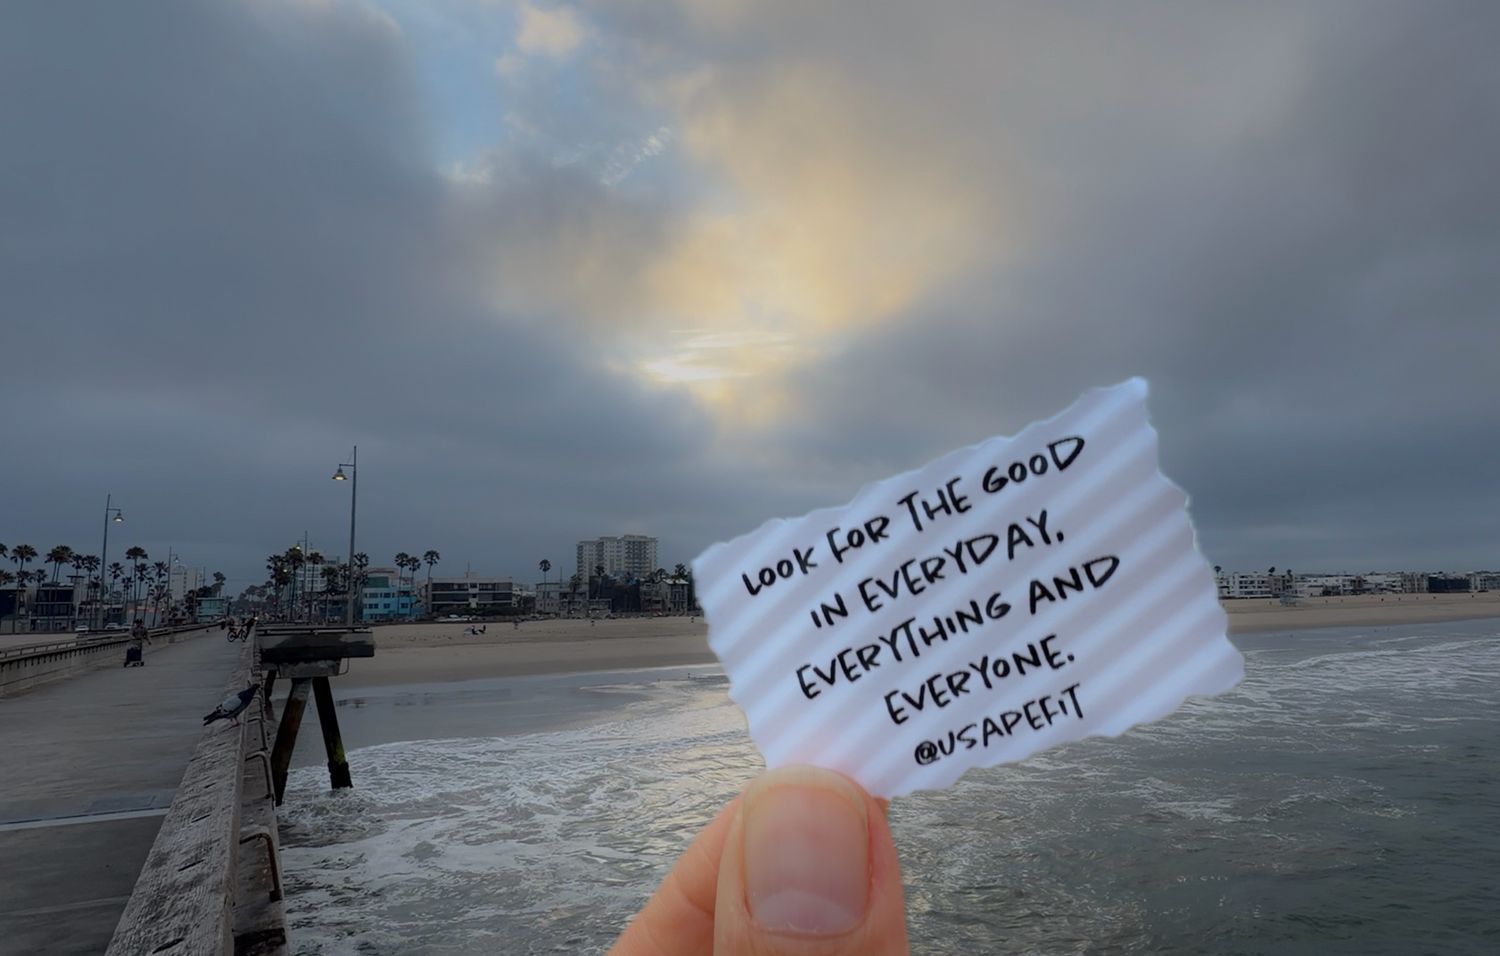 LOOK FOR THE GOOD
IN EVERYDAY,
EVERYTHING AND
EVERYONE.
@USAPEFIT